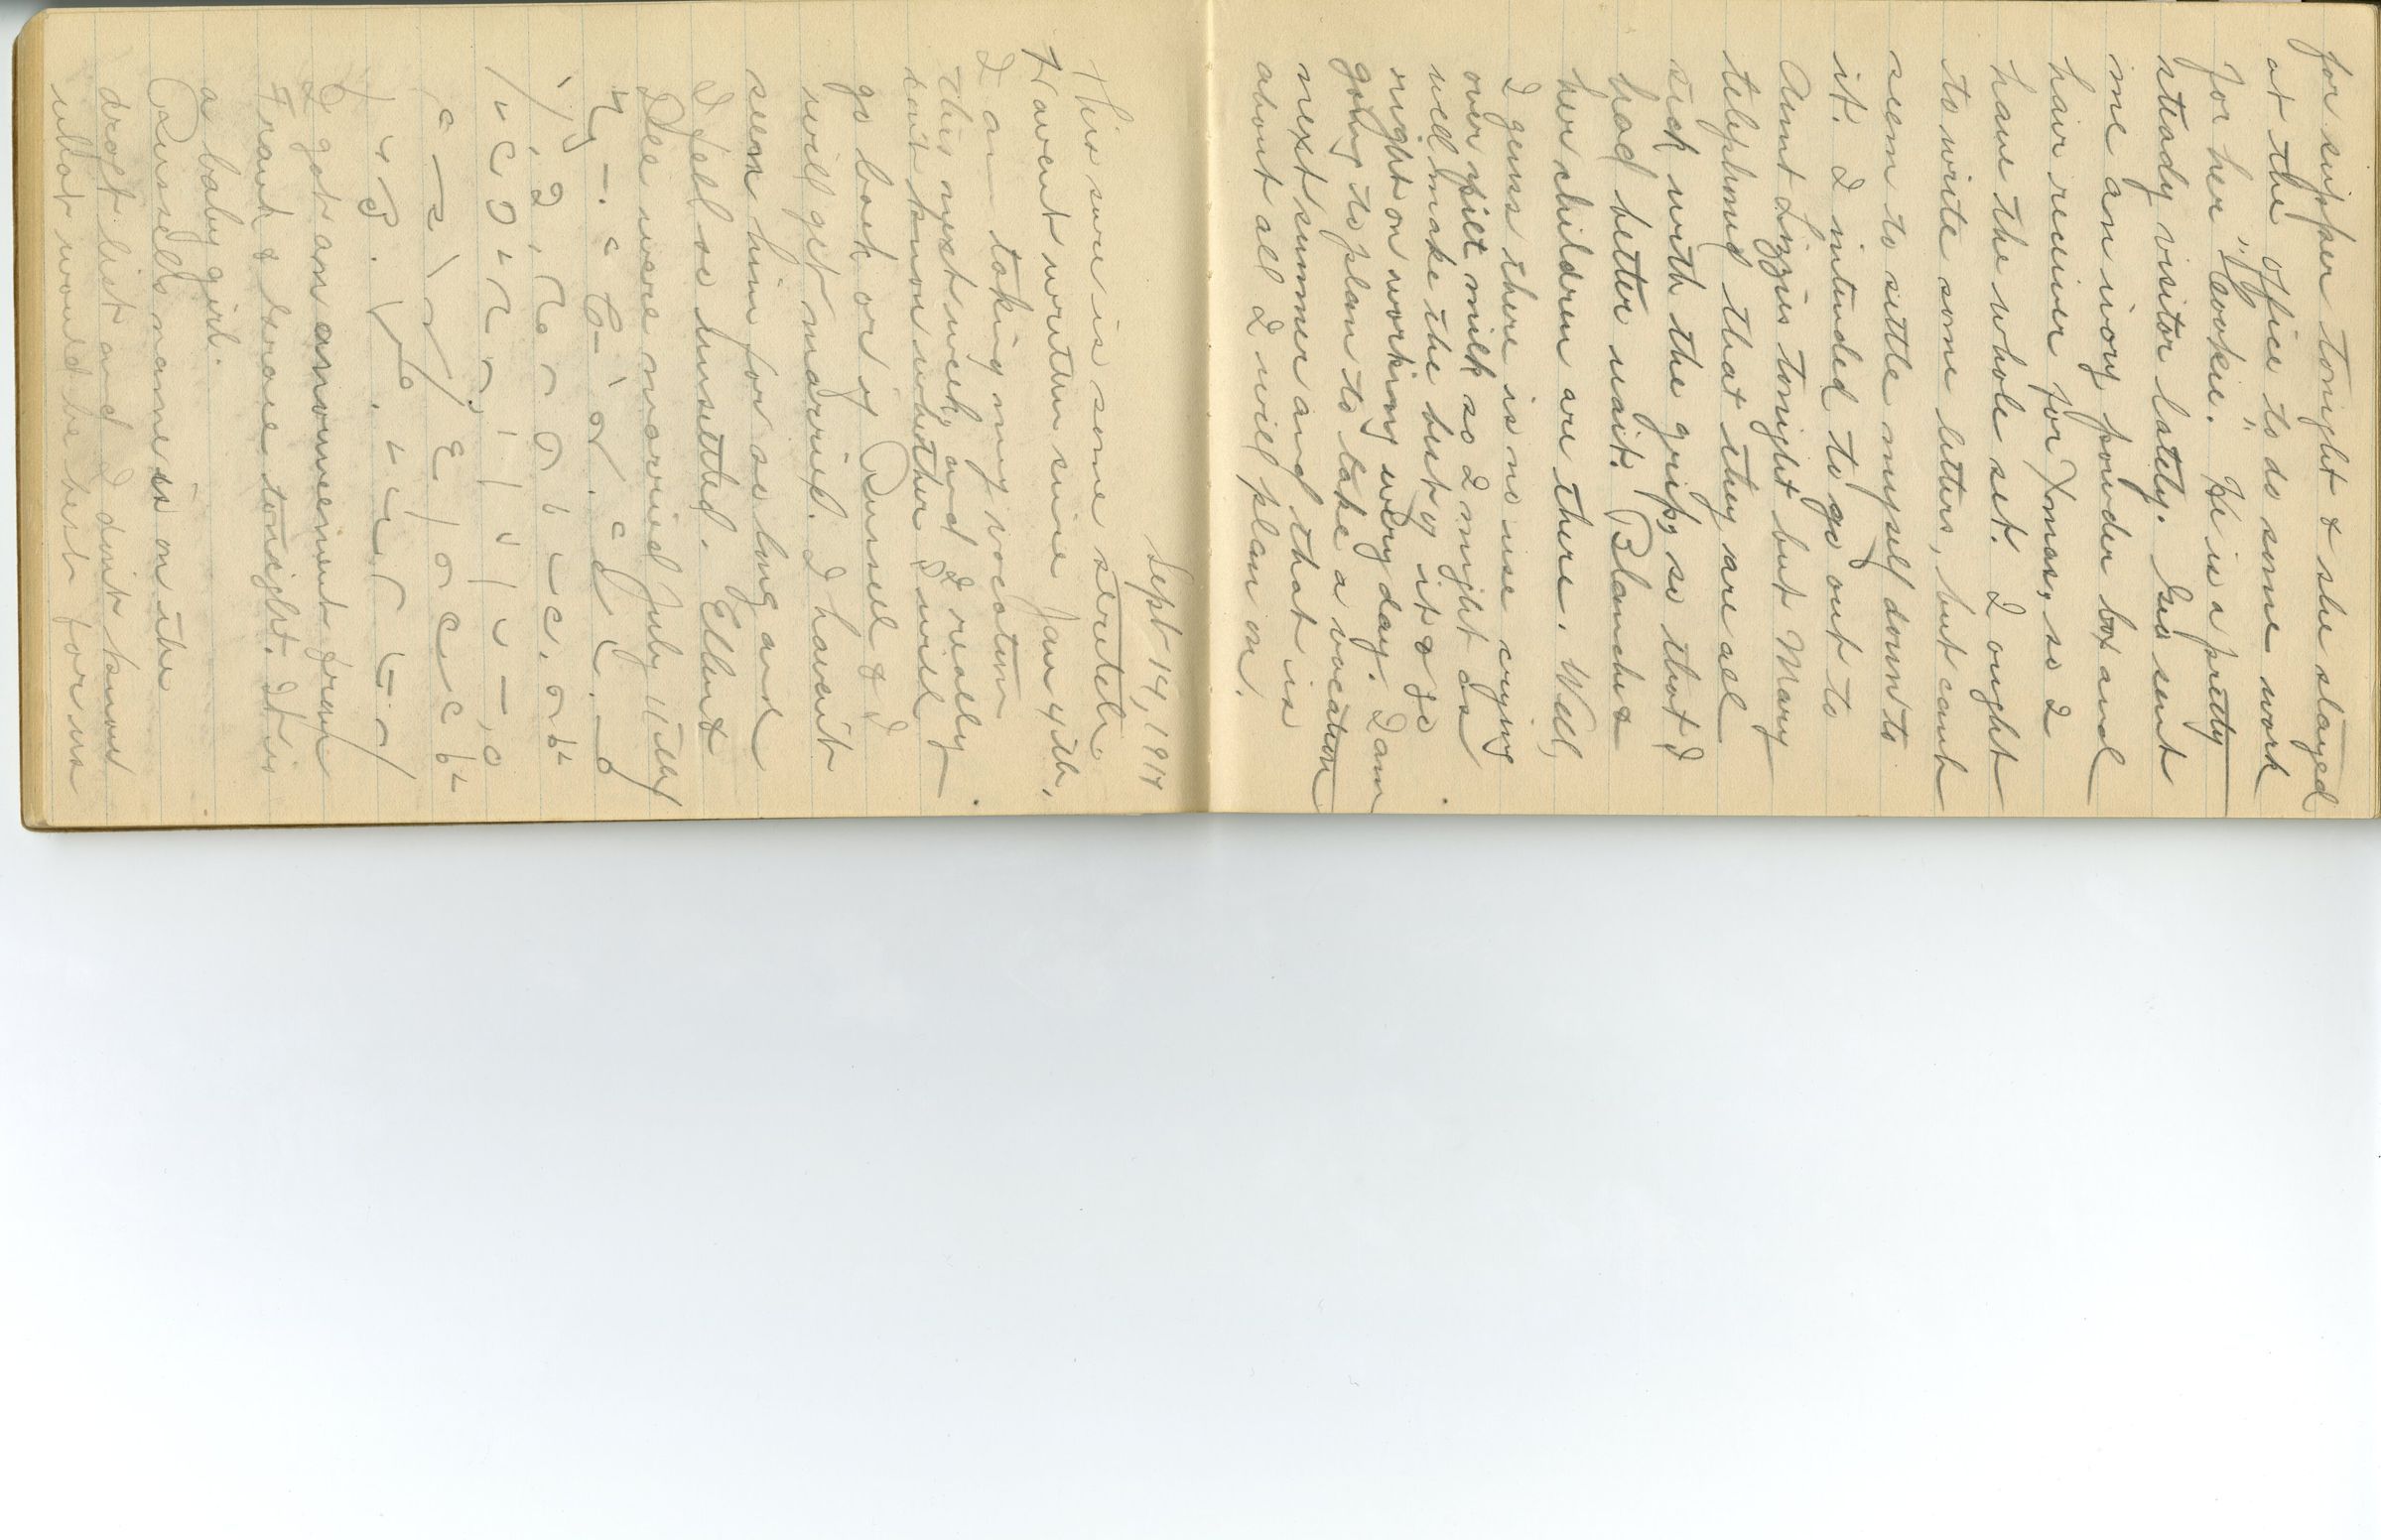 for supper tonight & she stayed
at the office to do some work
for her "Cookie." He is a pretty
steady visitor lately. Gus sent
me an ivory powder box and
hair receiver for Xmas, so I
have the whole set. I ought
to write some letters, but cant
seem to settle myself down to
it. I intended to go out to
Aunt Lizzies tonight but Mary
telephoned that they are all
sick with the grip, so that I
had better wait. Blanche &
her children are there. Well,
I guess there is no use crying
over spilt milk so I might as
well make the best of it & go
right on working every day. I am
going to plan to take a vacation
next summer and that is
about all I will plan on.
Sept 14, 1917
This sure is some stretch.
Havent written since Jan 4th.
I am taking my vacation
this next week, and I really
dont know whether I will
go back or if Russell & I
will get married. I havent
seen him for so long and
I feel so unsettled. Ellen &
Dee were married July 11th
I got an announcement from
Frank & Lorane tonight. It is
a baby girl.
Russells name is on the
draft list and I dont know
what would be best for us